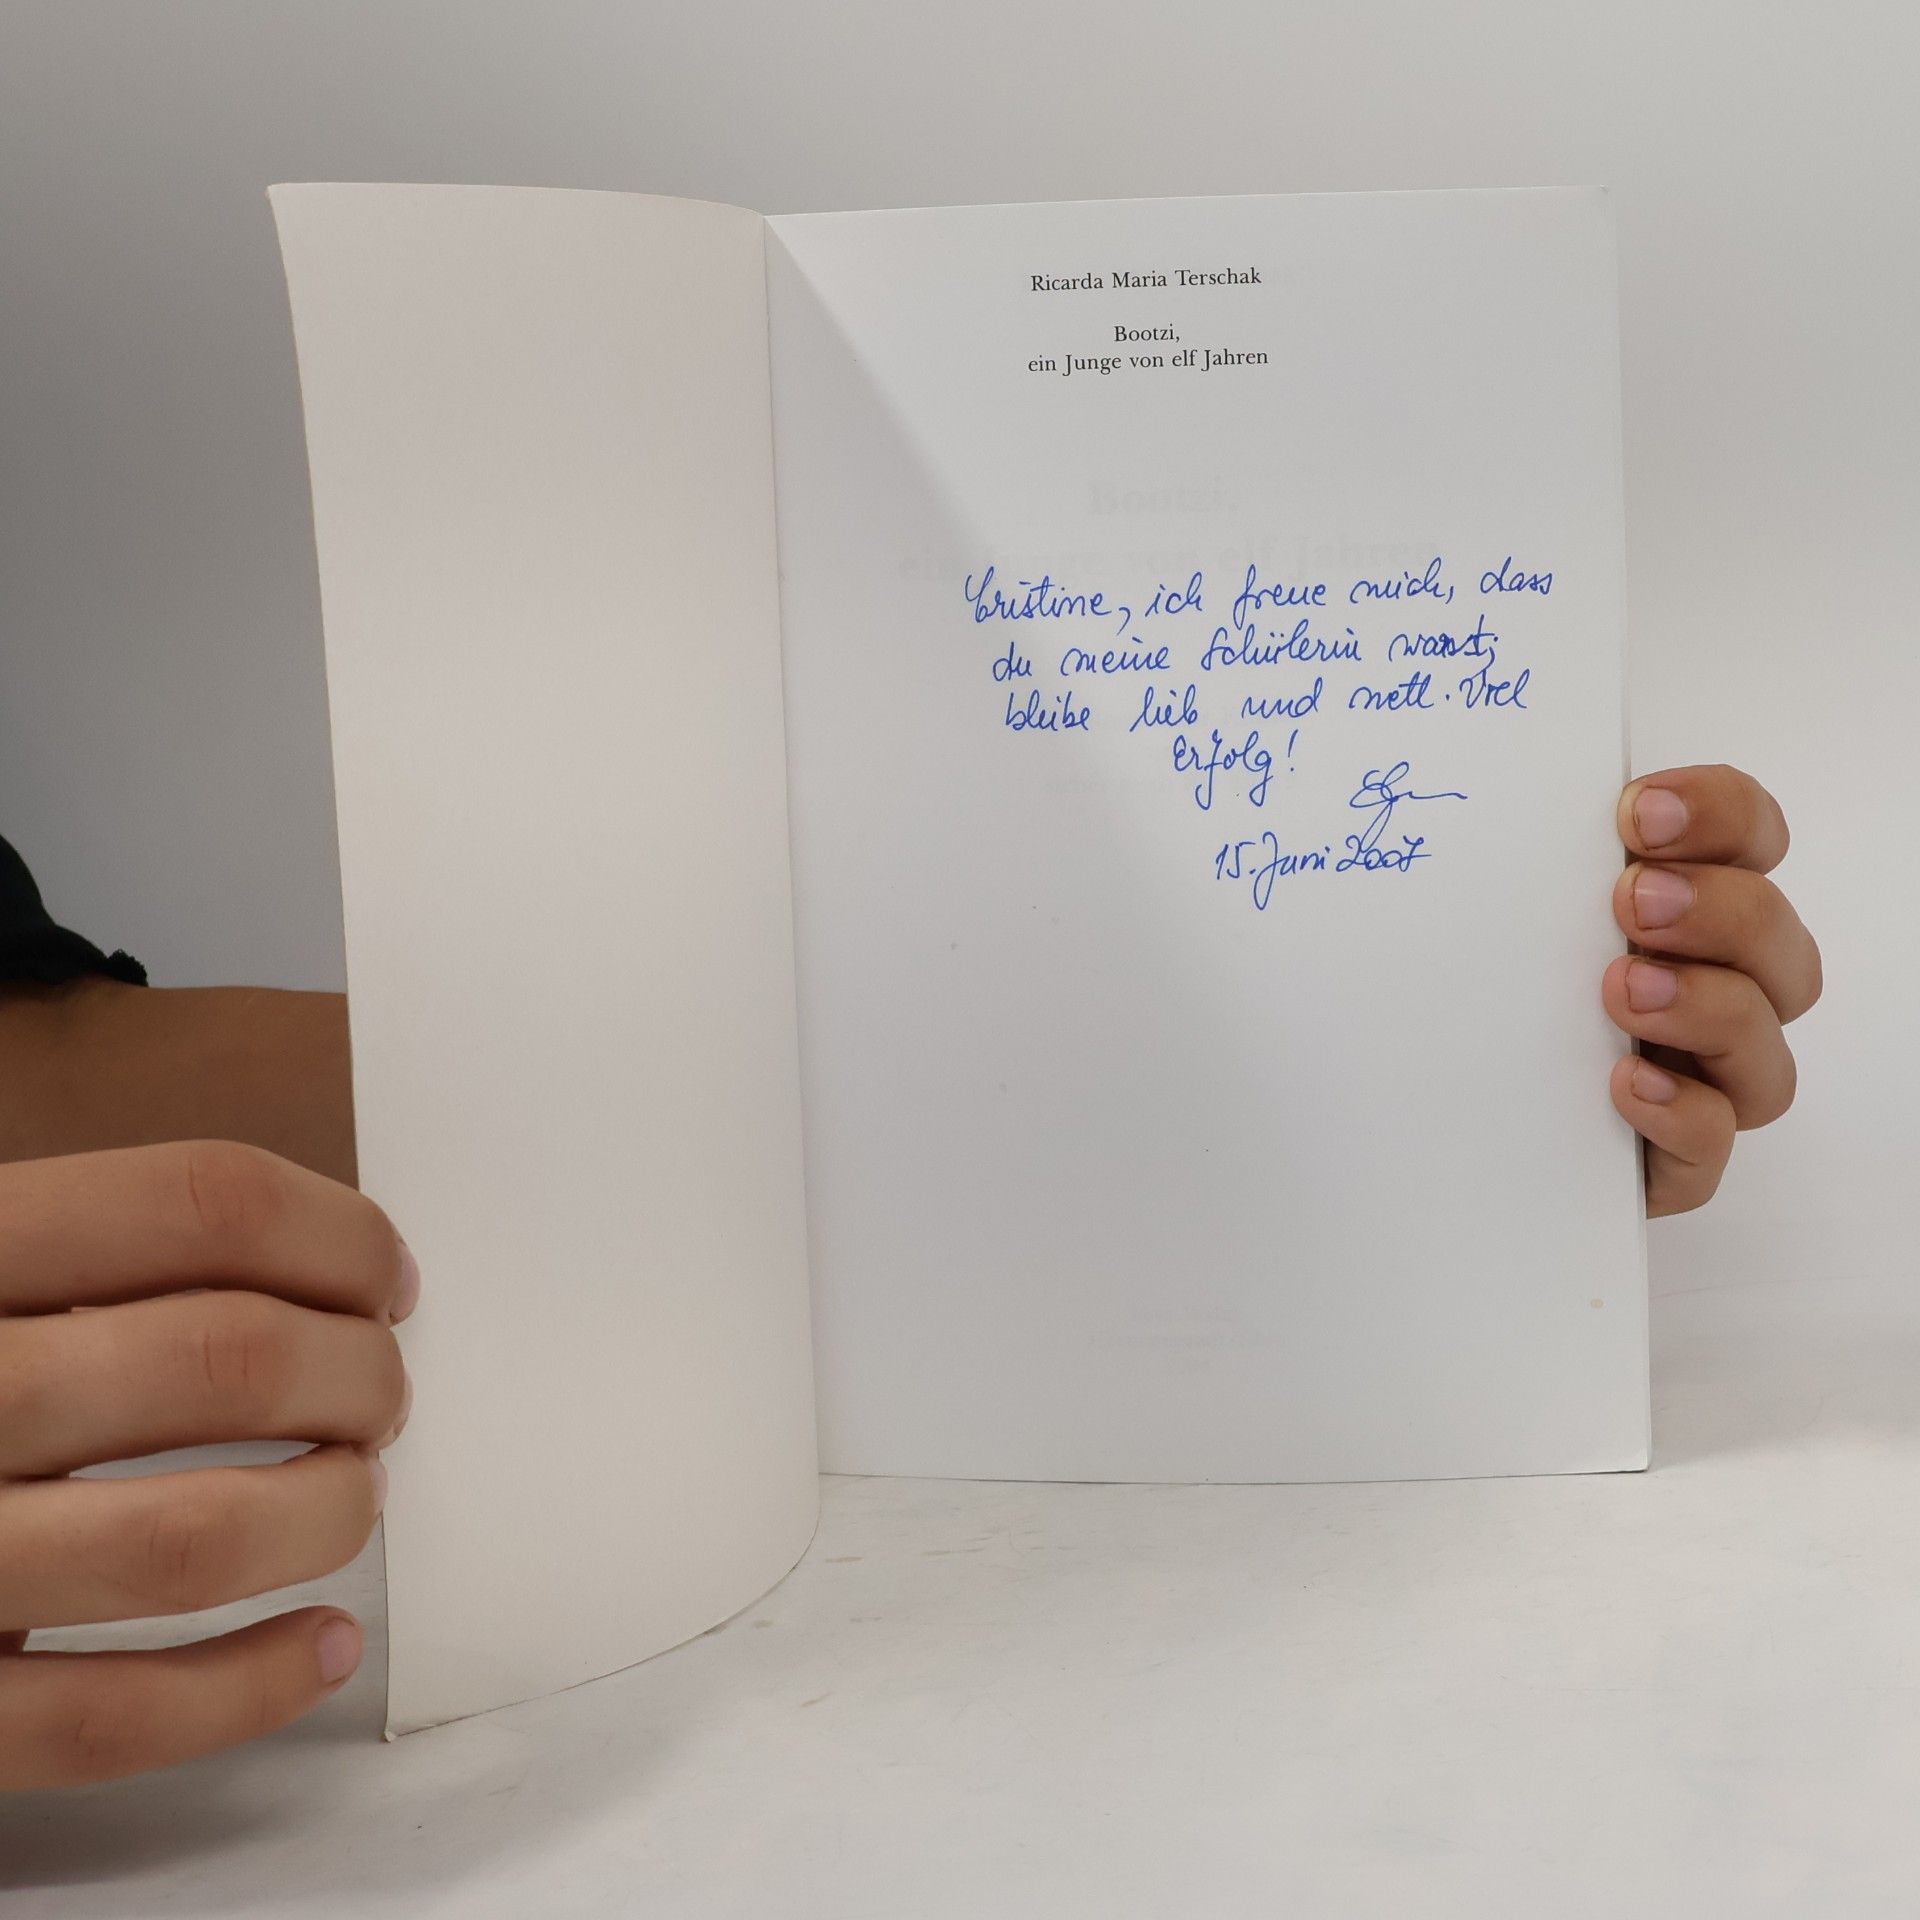 Ricarda Maria Terschak
Bootzi,
ein Junge von elf Jahren
Cristine, ich freue mich, dass
du meine Schülerin warst;
bleibe lieb und nett. Viel
Erfolg!
15. Juni 2007